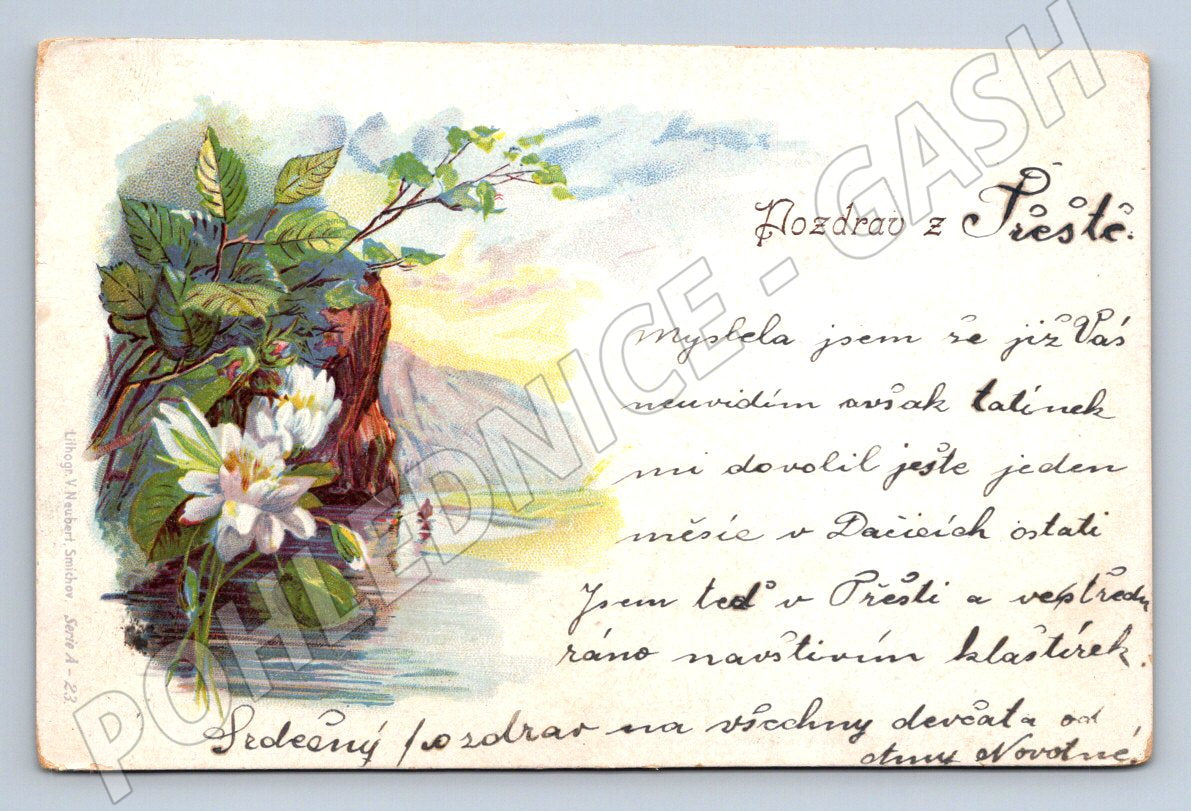 Pozdrav z Třeště.
Myslela jsem že již Vás
neuvidím avšak tatínek
mi dovolil ješte jeden
měsíc v Dačicích ostati
Jsem teď v Třešti a ve středu
ráno navštivím klaštírek.
Srdečný pozdrav na všechny devčata od
Anny Novotné.
Lithogr. V. Neubert, Smíchov Serie A - 23
POHLEDNICE - GASH